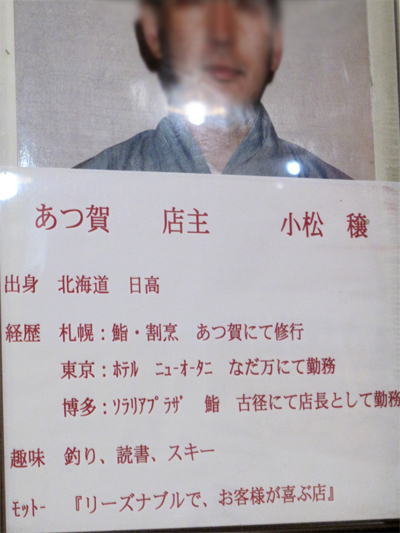 あつ賀　店主　小松　穣
出身　北海道　日高
経歴　札幌：鮨・割烹　あつ賀にて修行
東京：ﾎﾃﾙ　ﾆｭｰｵｰﾀﾆ　なだ万にて勤務
博多：ｿﾗﾘｱﾌﾟﾗｻﾞ　鮨　古径にて店長として勤務
趣味　釣り、読書、スキー
ﾓｯﾄｰ　『リーズナブルで、お客様が喜ぶ店』